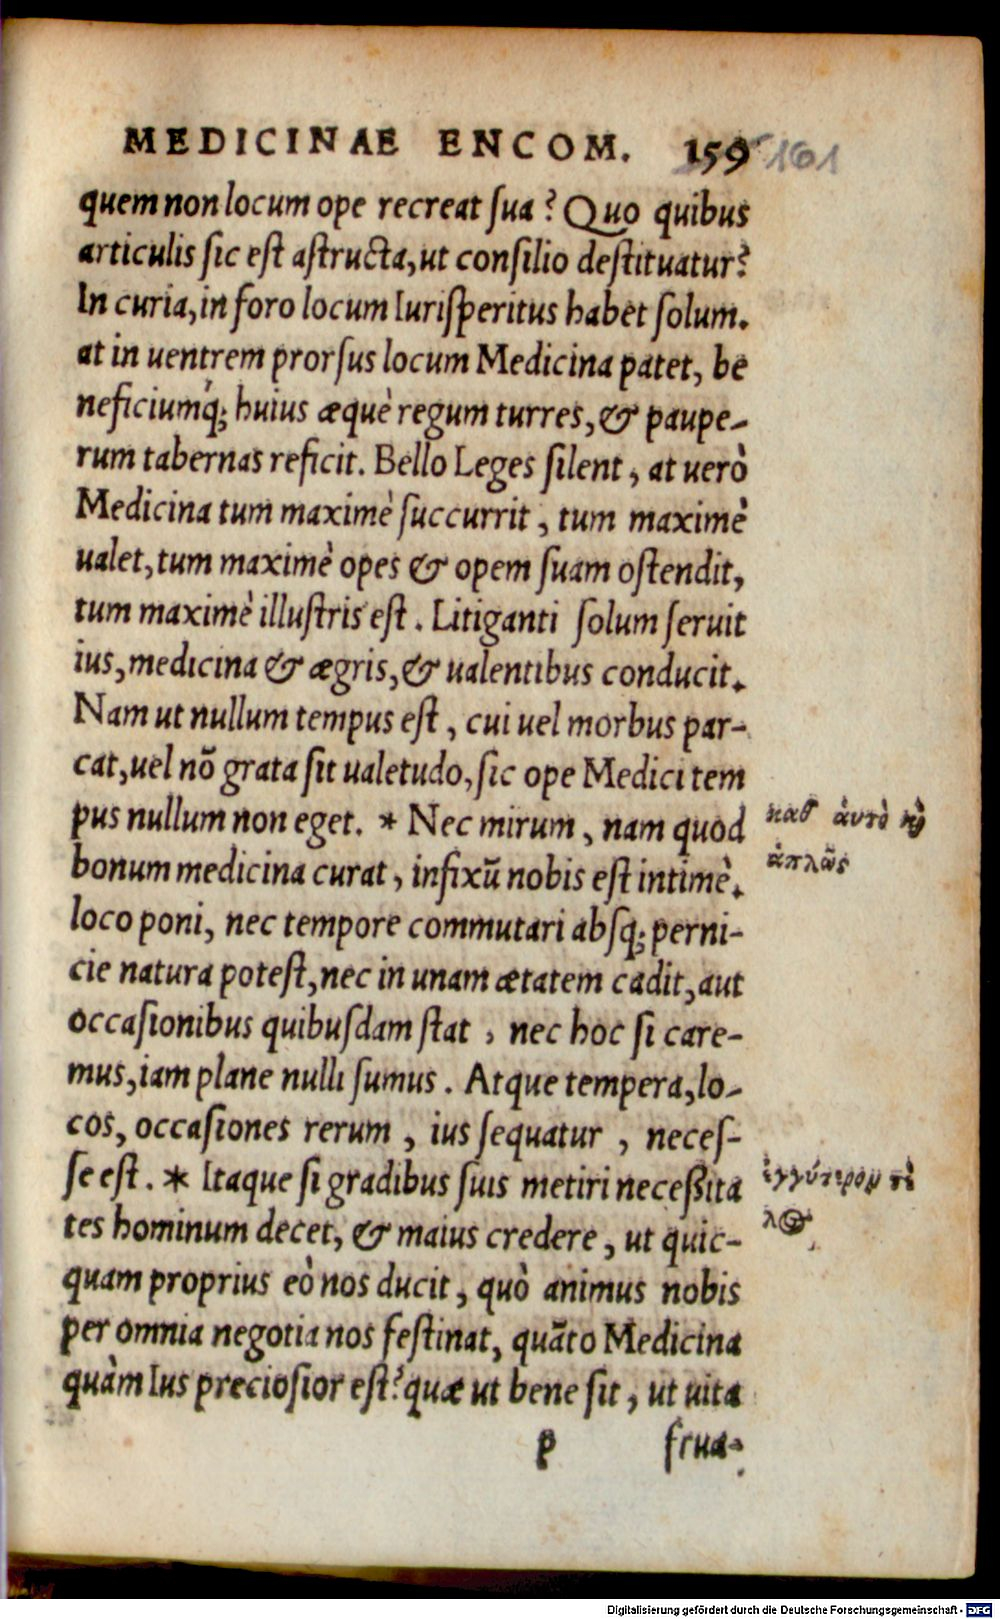 MEDICINAE ENCOM. 159 161
quem non locum ope recreat ſua? Quo quibus
articulis ſic eſt aſtructa, ut conſilio deſtituatur?
In curia, in foro locum Iuriſperitus habet ſolum.
at in uentrem prorſus locum Medicina patet, be
neficiumq́; huius æquè regum turres, & paupe-
rum tabernas reficit. Bello Leges ſilent, at uerò
Medicina tum maximè ſuccurrit, tum maximè
ualet, tum maximè opes & opem ſuam oſtendit,
tum maximè illuſtris eſt. Litiganti ſolum ſeruit
ius, medicina & ægris, & ualentibus conducit.
Nam ut nullum tempus eſt, cui uel morbus par-
cat, uel nõ grata ſit ualetudo, ſic ope Medici tem
pus nullum non eget. * Nec mirum, nam quod
bonum medicina curat, infixũ nobis eſt intimè.
loco poni, nec tempore commutari abſq; perni-
cie natura poteſt, nec in unam ætatem cadit, aut
occaſionibus quibuſdam ſtat, nec hoc ſi care-
mus, iam plane nulli ſumus. Atque tempera, lo-
cos, occaſiones rerum, ius ſequatur, neceſ-
ſe eſt. * Itaque ſi gradibus ſuis metiri neceßita
tes hominum decet, & maius credere, ut quic-
quam proprius eò nos ducit, quò animus nobis
per omnia negotia nos feſtinat, quãto Medicina
quàm Ius precioſior eſt? quæ ut bene ſit, ut uita
p frua-
καθ' ἀυτὸ κỳ
ἁπλῶς
ἐγγύτερον τέ
λος
Digitalisierung gefördert durch die Deutsche Forschungsgemeinschaft - DFG